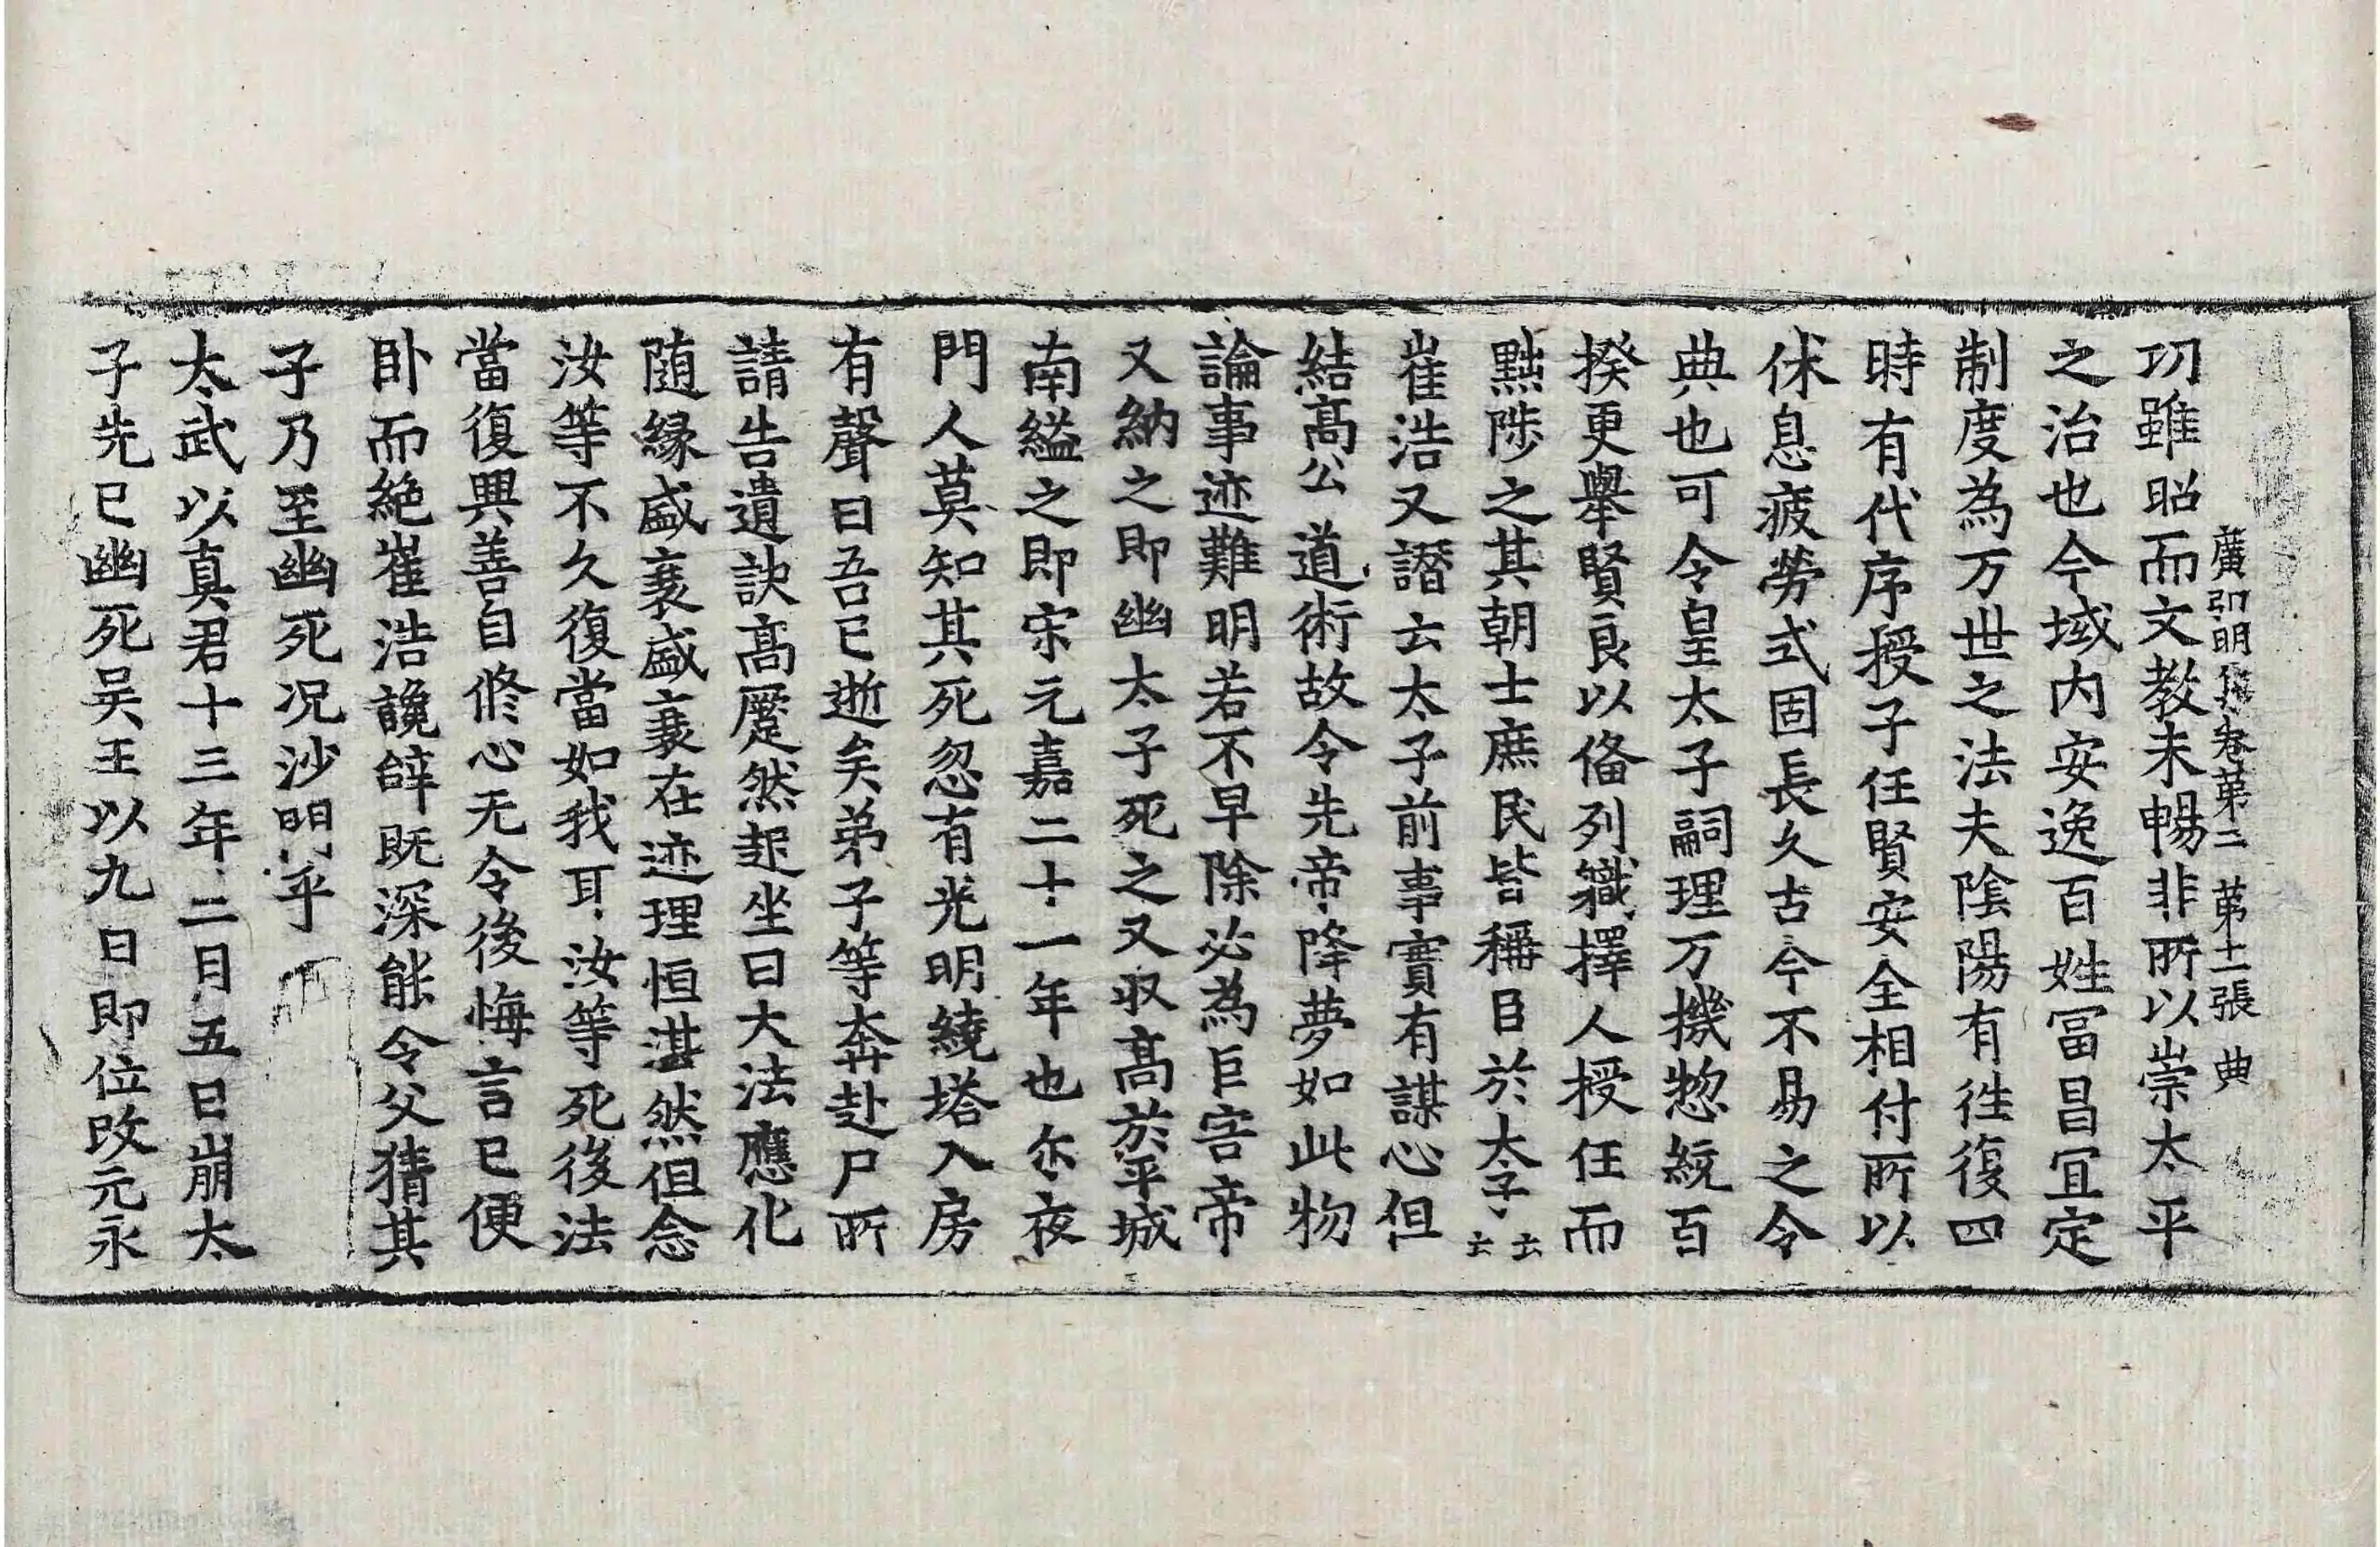 廣弘明集卷第二 第十二張 典
功雖昭而文教未暢非所以崇太平
之治也今域内安逸百姓冨昌冝定
制度為万世之法夫陰陽有徃復四
時有代序授子任賢安全相付所以
休息疲勞式固長久古今不易之令
典也可令皇太子嗣理万機㹅統百
揆更舉賢良以俻列軄擇人授任而
黜陟之其朝士庶民皆稱臣於太子云云
崔浩又譖云太子前事實有謀心但
結髙公道術故令先帝降夢如此物
論事迹難明若不早除必為巨害帝
又納之即幽太子死之又収髙於平城
南縊之即宋元嘉二十一年也尒夜
門人莫知其死忽有光明繞塔入房
有聲曰吾已逝矣弟子等奔赴尸所
請告遺訣髙蹙然起坐曰大法應化
随緣盛衰盛衰在迹理恒湛然但念
汝等不久復當如我耳汝等死後法
當復興善自修心无令後悔言已便
卧而絶崔浩讒辞既深能令父猜其
子乃至幽死况沙門乎
太武以真君十三年二月五日崩太
子先已幽死吴王以九日即位改元永